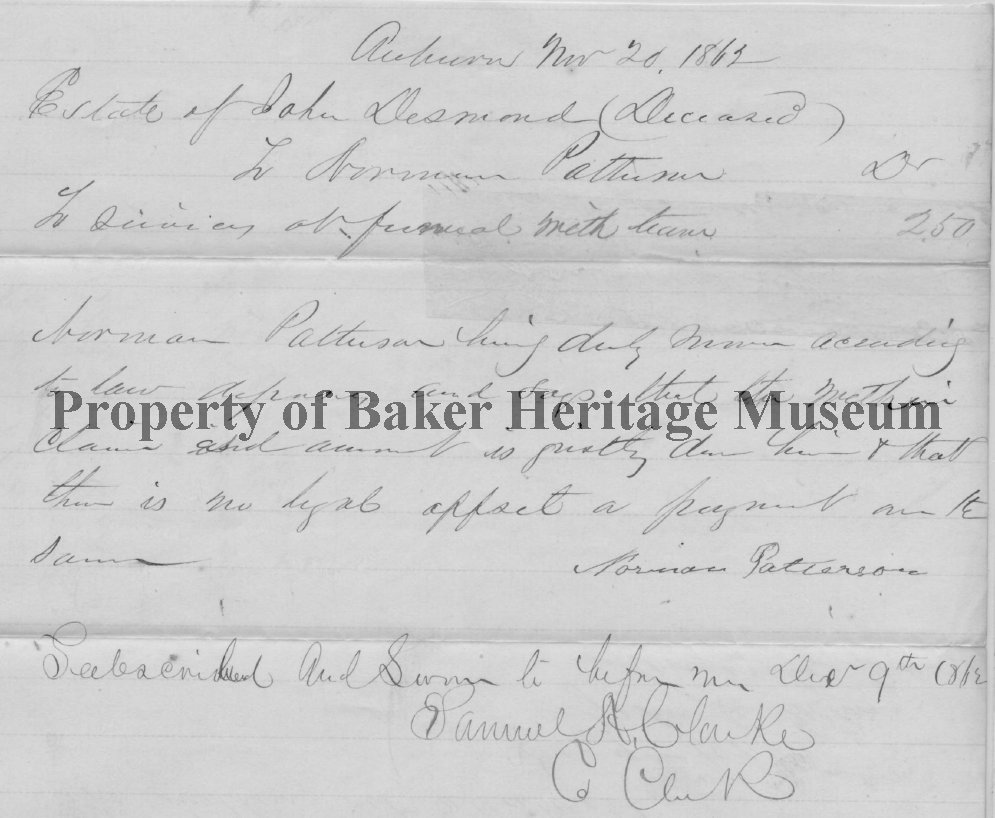 Auburn Nov 20, 1862
Estate of John Desmond (Deceased)
To Norman Patterson Dr
To Services at funeral with team 2.50
Norman Patterson being duly sworn according
to law deposes and says that the within
Property of Baker Heritage Museum
claim and amount is justly due him & that
there is no legal offset a payment on the
same Norman Patterson
Subscribed And Sworn to before me Dec 9th 1862
Samuel A. Clarke
C Clerk